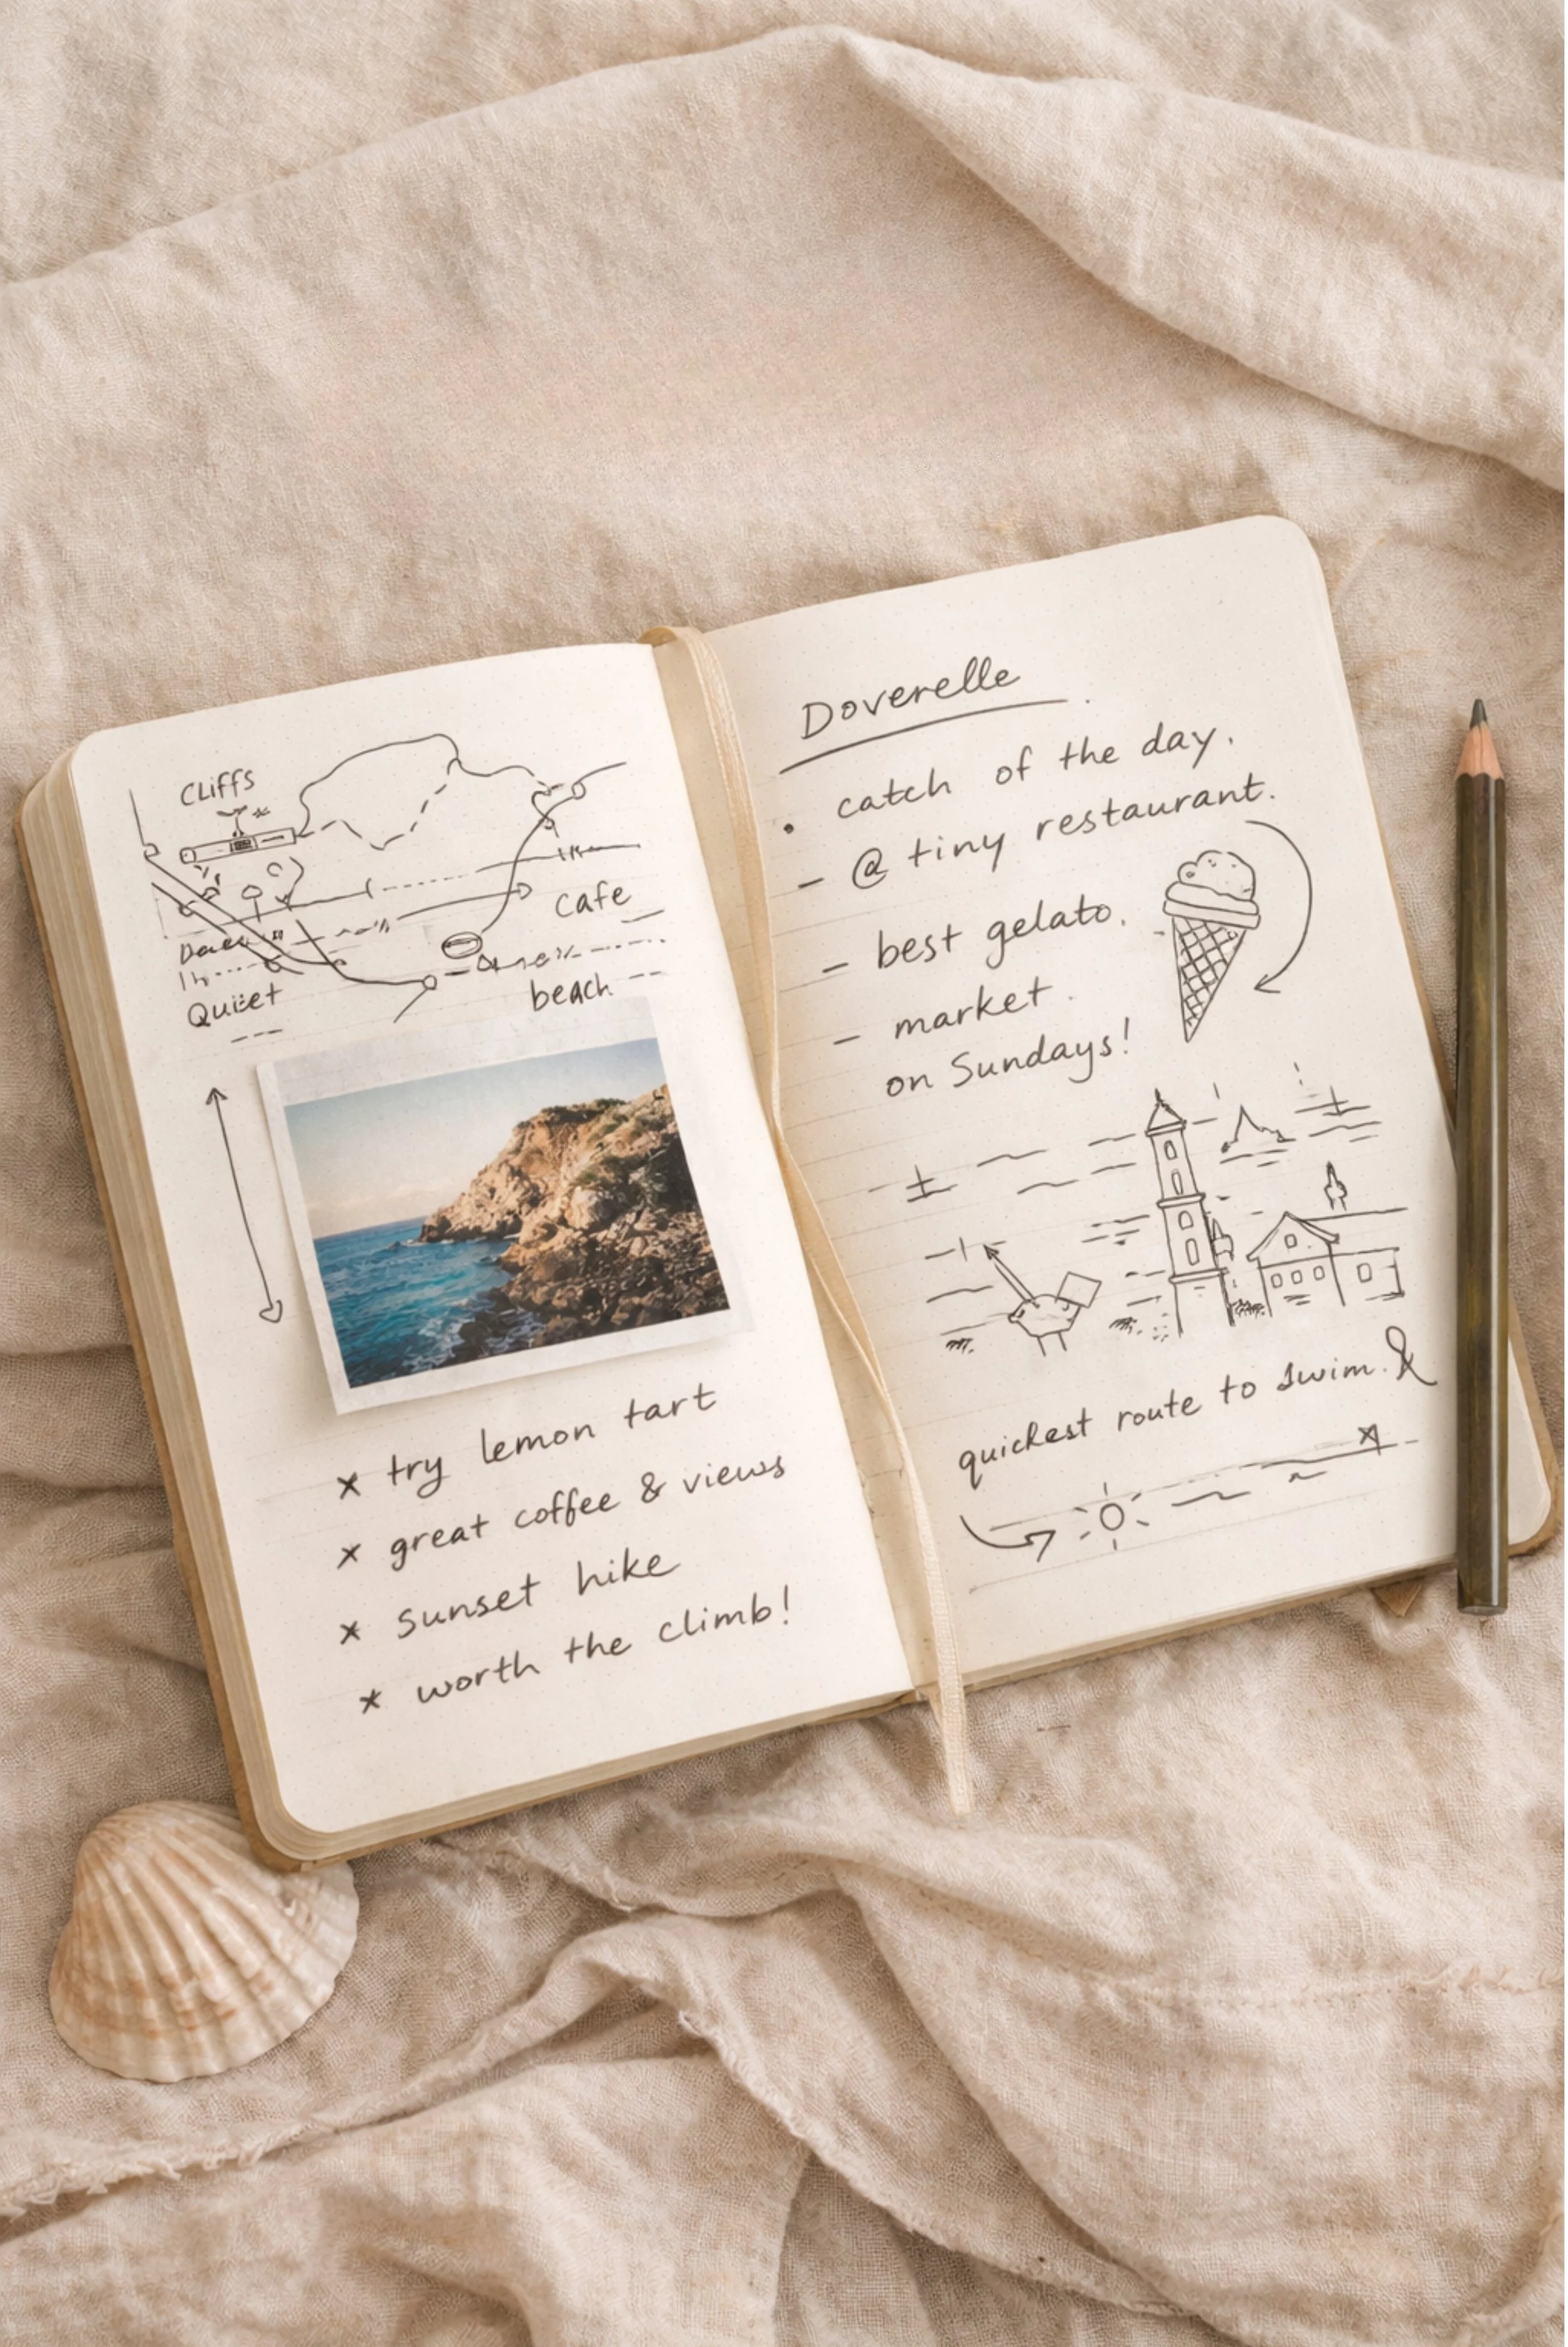 CLiffs
cafe
Quiet
beach
× try lemon tart
× great coffee & views
× sunset hike
× worth the climb!
Doverelle
• catch of the day.
– @ tiny restaurant.
– best gelato.
– market.
on Sundays!
quickest route to swim. &